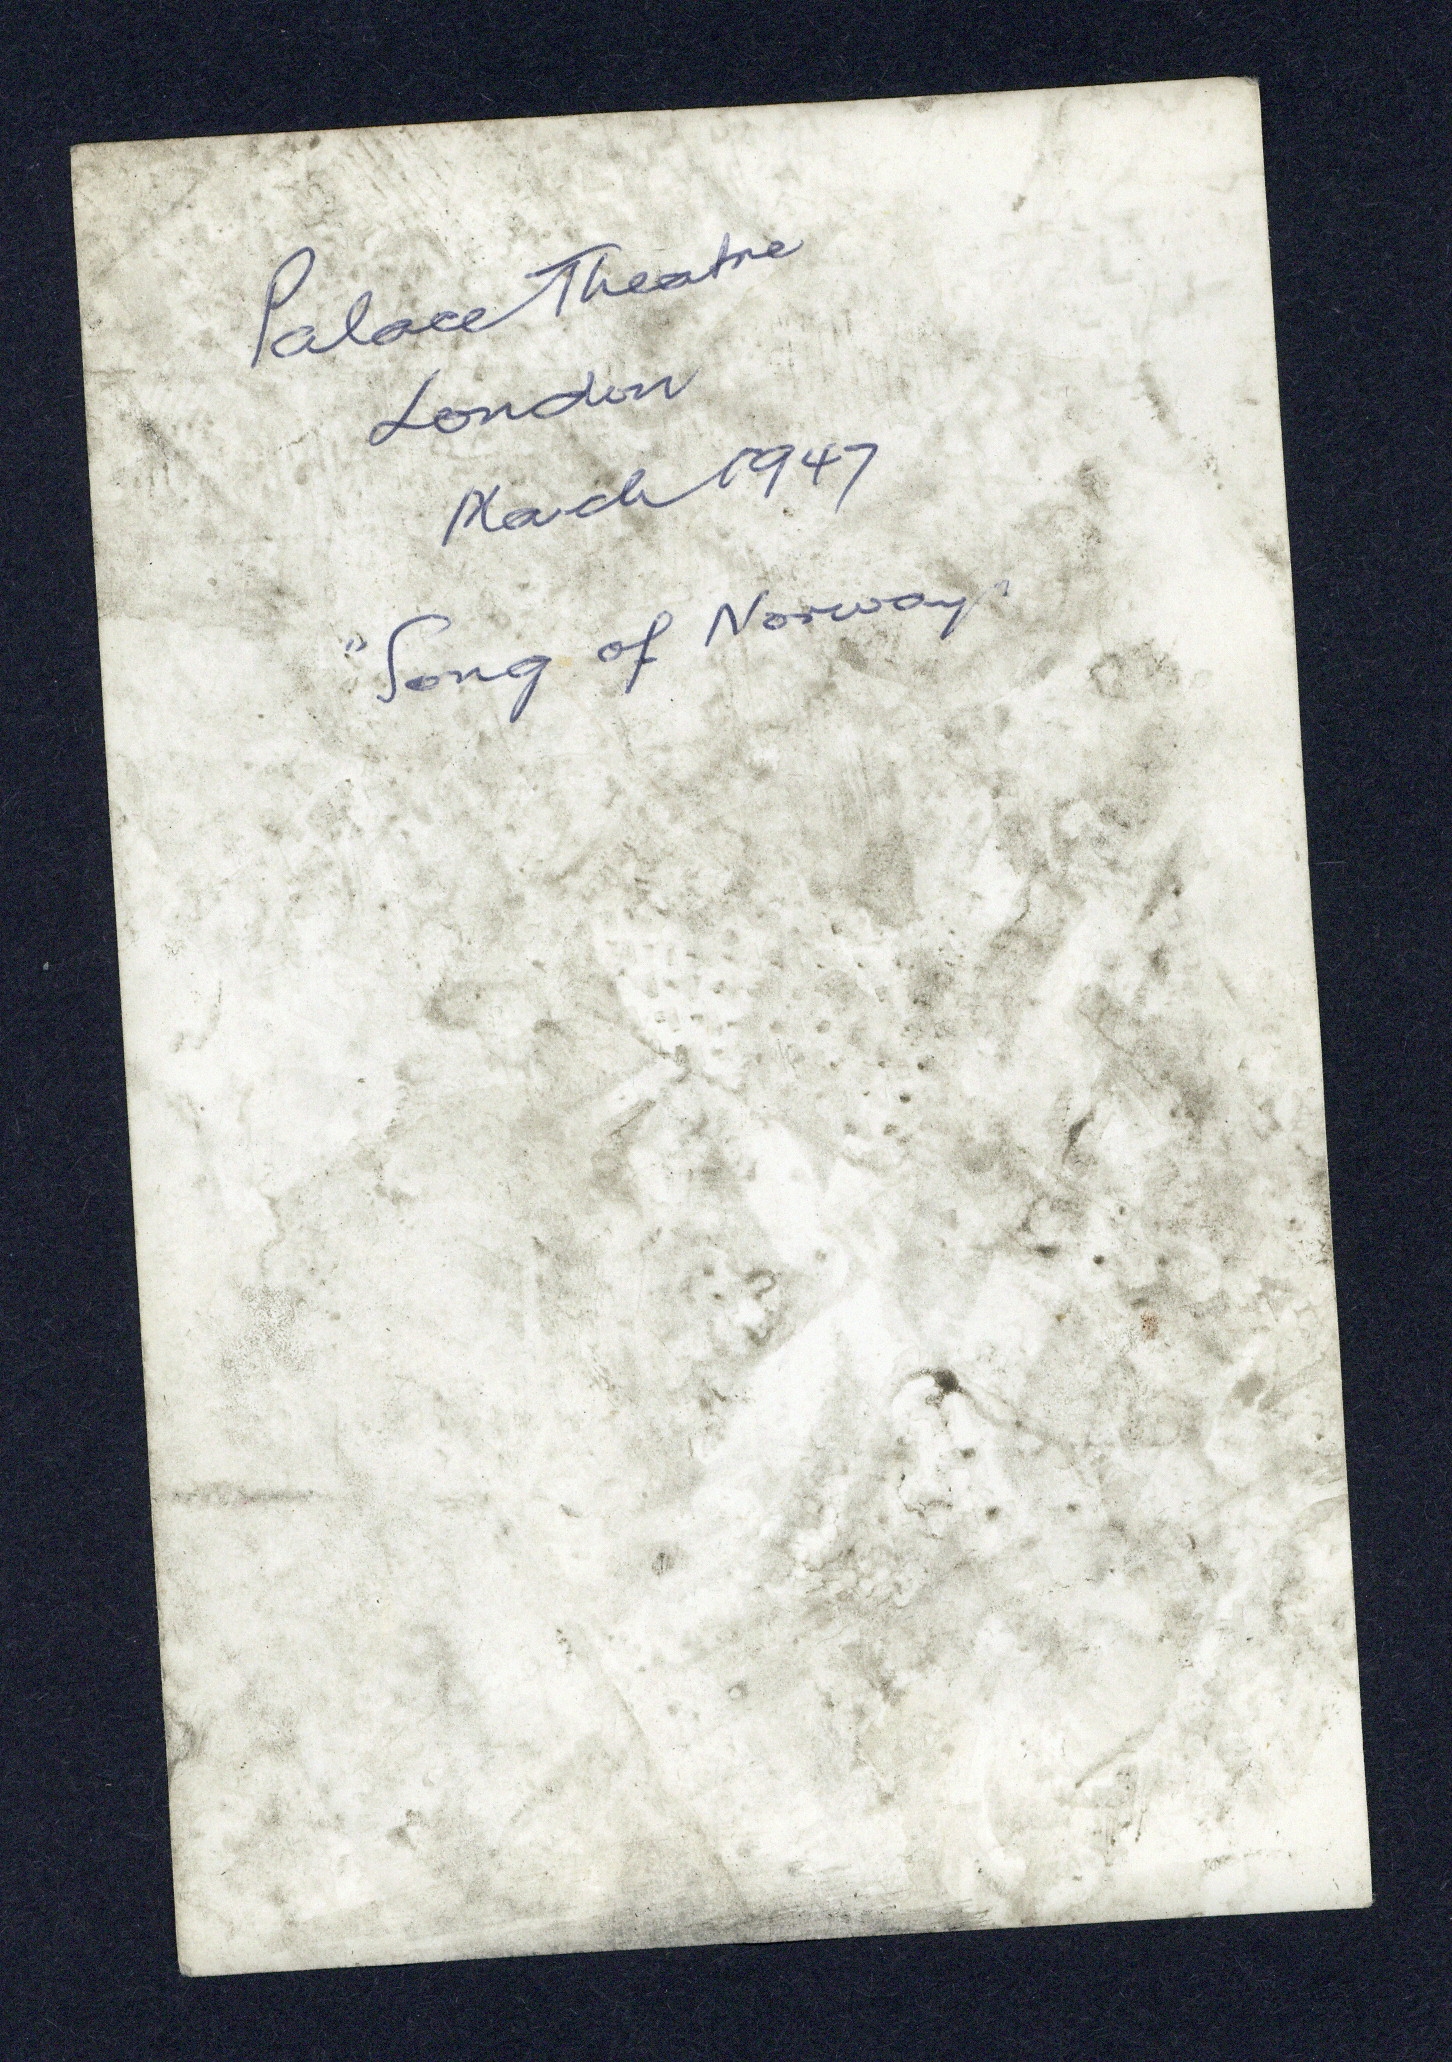 Palace Theatre
London
March 1947
"Song of Norway"